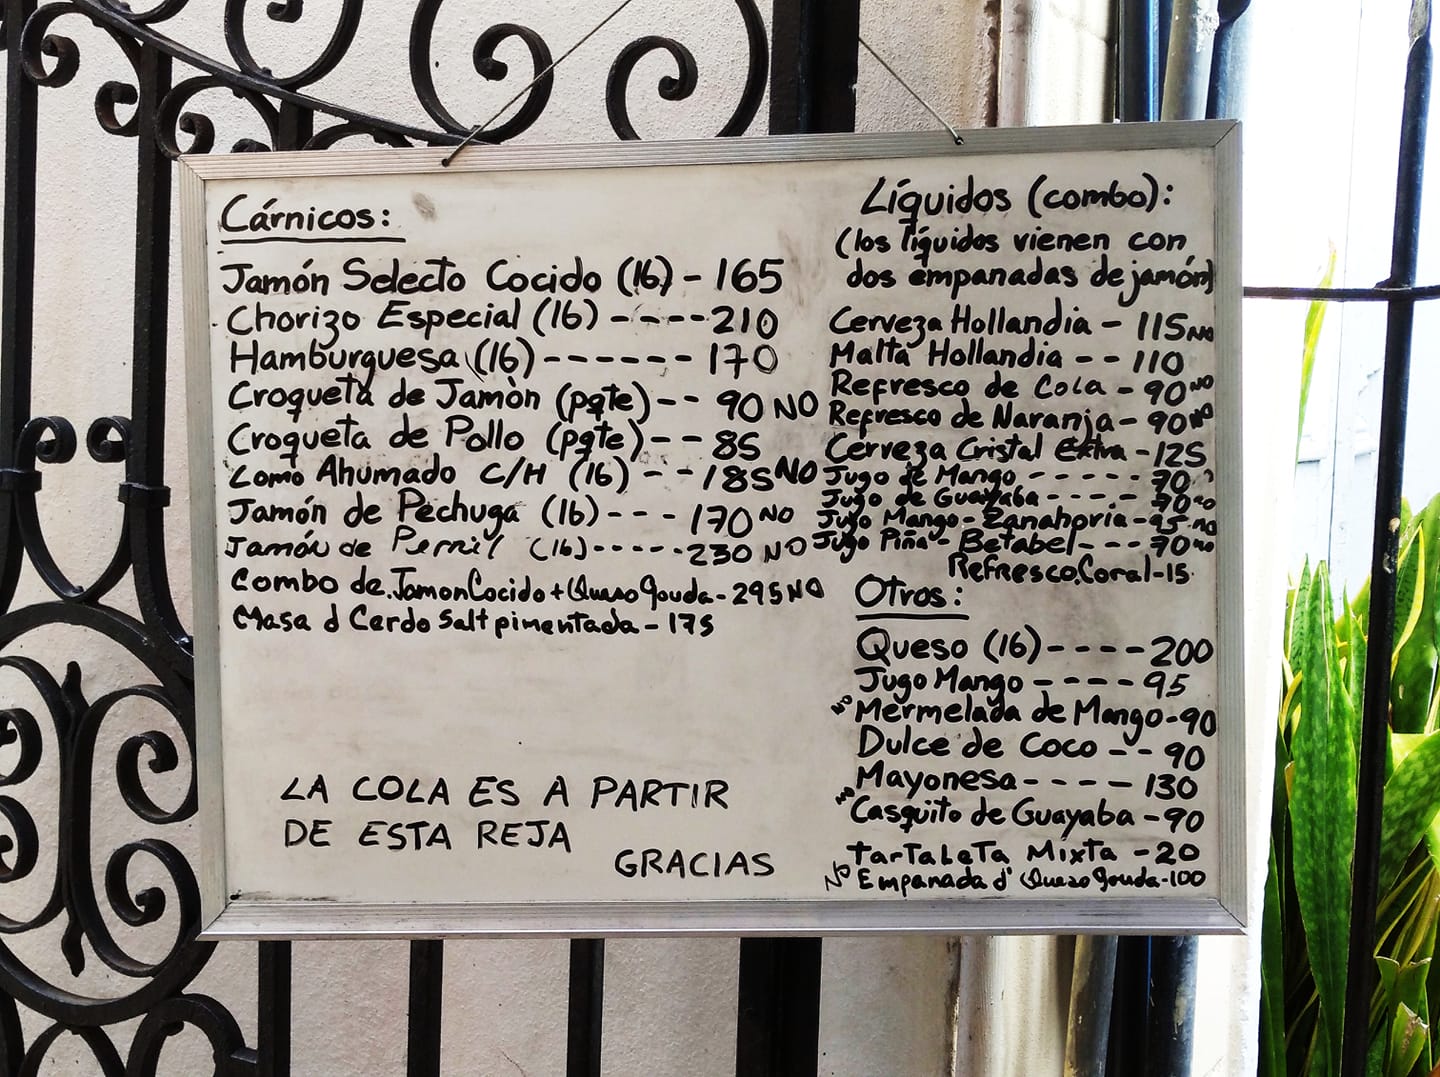 Cárnicos:
Jamón Selecto Cocido (16) - 165
Chorizo Especial (16) ---- 210
Hamburguesa (16) ------ 170
Croqueta de Jamòn (pqte) -- 90 NO
Croqueta de Pollo (pqte) -- 85
Lomo Ahumado C/H (16) -- 185 NO
Jamón de Pechuga (16) --- 170 NO
Jamón de Pernil (16) ----- 230 NO
Combo de Jamon Cocido + Queso Gouda - 295 NO
Masa d Cerdo Salt pimentada - 175
LA COLA ES A PARTIR
DE ESTA REJA
GRACIAS
Líquidos (combo):
(los líquidos vienen con
dos empanadas de jamón)
Cerveza Hollandia - 115 NO
Malta Hollandia -- 110
Refresco de Cola - 90 NO
Refresco de Naranja - 90 NO
Cerveza Cristal Extra - 125
Jugo de Mango ----- 70
Jugo de Guayaba ----- 70 NO
Jugo Mango - Zanahoria - 95 NO
Jugo Piña - Betabel --- 70 NO
Refresco Coral - 15
Otros:
Queso (16) ---- 200
Jugo Mango ---- 95
NO Mermelada de Mango - 90
Dulce de Coco -- 90
Mayonesa ---- 130
NO Casquito de Guayaba - 90
Tartaleta Mixta - 20
NO Empanada d' Queso Gouda - 100